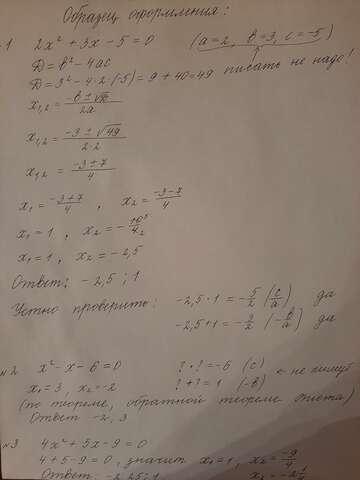 Образец оформления:
1 2x² + 3x - 5 = 0 (a = 2, b = 3, c = -5)
D = b² - 4ac писать не надо!
D = 3² - 4·2·(-5) = 9 + 40 = 49
x₁,₂ = (-b ± √D)/2a
x₁,₂ = (-3 ± √49)/2·2
x₁,₂ = (-3 ± 7)/4
x₁ = (-3+7)/4 , x₂ = (-3-7)/4
x₁ = 1 , x₂ = - 10⁵/4₂
x₁ = 1 , x₂ = - 2,5
Ответ: - 2,5 ; 1
Устно проверить: -2,5 · 1 = - 5/2 (c/a) да
-2,5 + 1 = - 3/2 (- b/a) да
№2 x² - x - 6 = 0 ? · ? = -6 (c)
x₁ = 3, x₂ = -2 ? + ? = 1 (-b) ← не пишут
(по теореме, обратной теореме Виета)
Ответ -2, 3
№3 4x² + 5x - 9 = 0
4 + 5 - 9 = 0, значит x₁ = 1, x₂ = -9/4
Ответ: - 2,25; 1